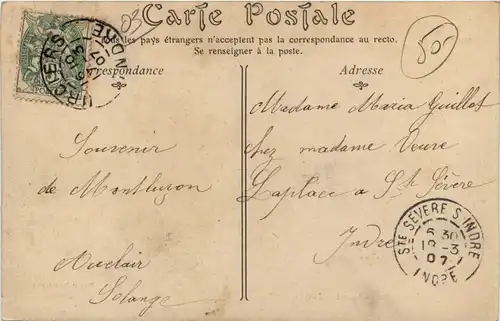 03
Carte Postale
Tous les pays étrangers n'acceptent pas la correspondance au recto.
Se renseigner à la poste.
Correspondance
Adresse
50
INDRE
07
Souvenir
de Montluçon
Auclair
Solange
Madame Maria Guillot
chez madame Veuve
Laplace a Ste Sévère
Indre
STE SEVERE S. INDRE
6 30
18 -3
07
INDRE